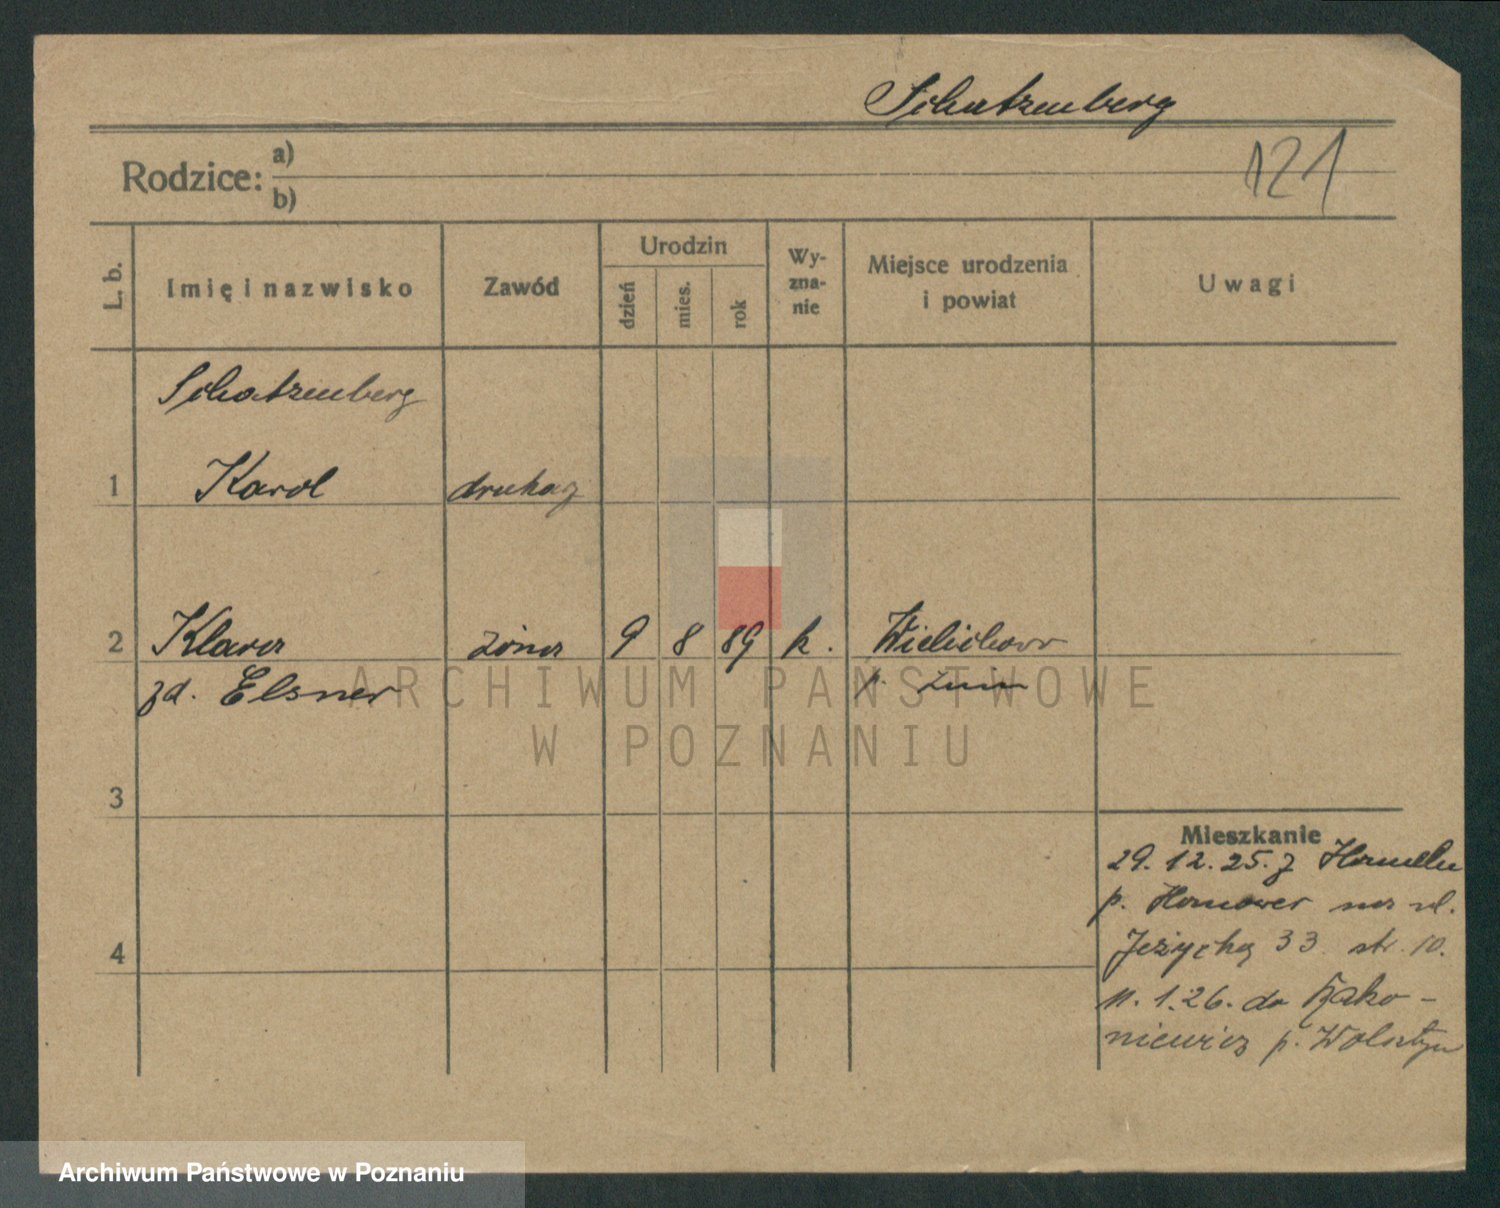 Schatzenberg
121
Rodzice: a)
b)
L. b.
Imię i nazwisko
Zawód
Urodzin
dzień
mies.
rok
Wy-
zna-
nie
Miejsce urodzenia
i powiat
Uwagi
Schatzenberg
1 Karol drukarz
2 Klara żona 9 8 89 k. Wielichowo
zd. Elsner p.
3
4
Mieszkanie
29. 12. 25. z Hameln
p. Hanower na ul.
Jeżycką 33 str. 10.
11. 1. 26. do Rako-
niewicz p. Wolsztyn
ARCHIWUM PAŃSTWOWE
W POZNANIU
Archiwum Państwowe w Poznaniu